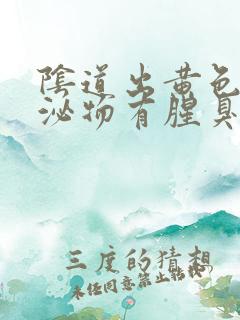 陰道出黃色
泌物有腥臭
三度的猜想
未經同意禁止轉載